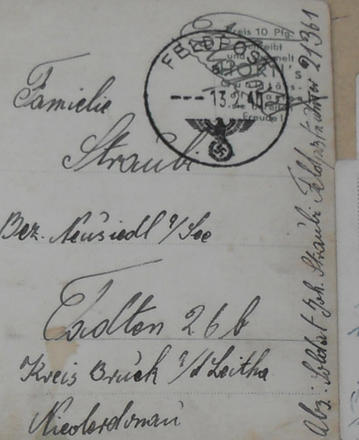 Kreis 10 Pfg.
FELDPOST
13.2.40
Freude!
Familie
Straubi
Bez. Neusiedl a/See
Tadten 26b
Kreis Bruck a/d Leitha
Niederdonau
Abs: Soldat Joh. Straubi Feldpostnummer 21361